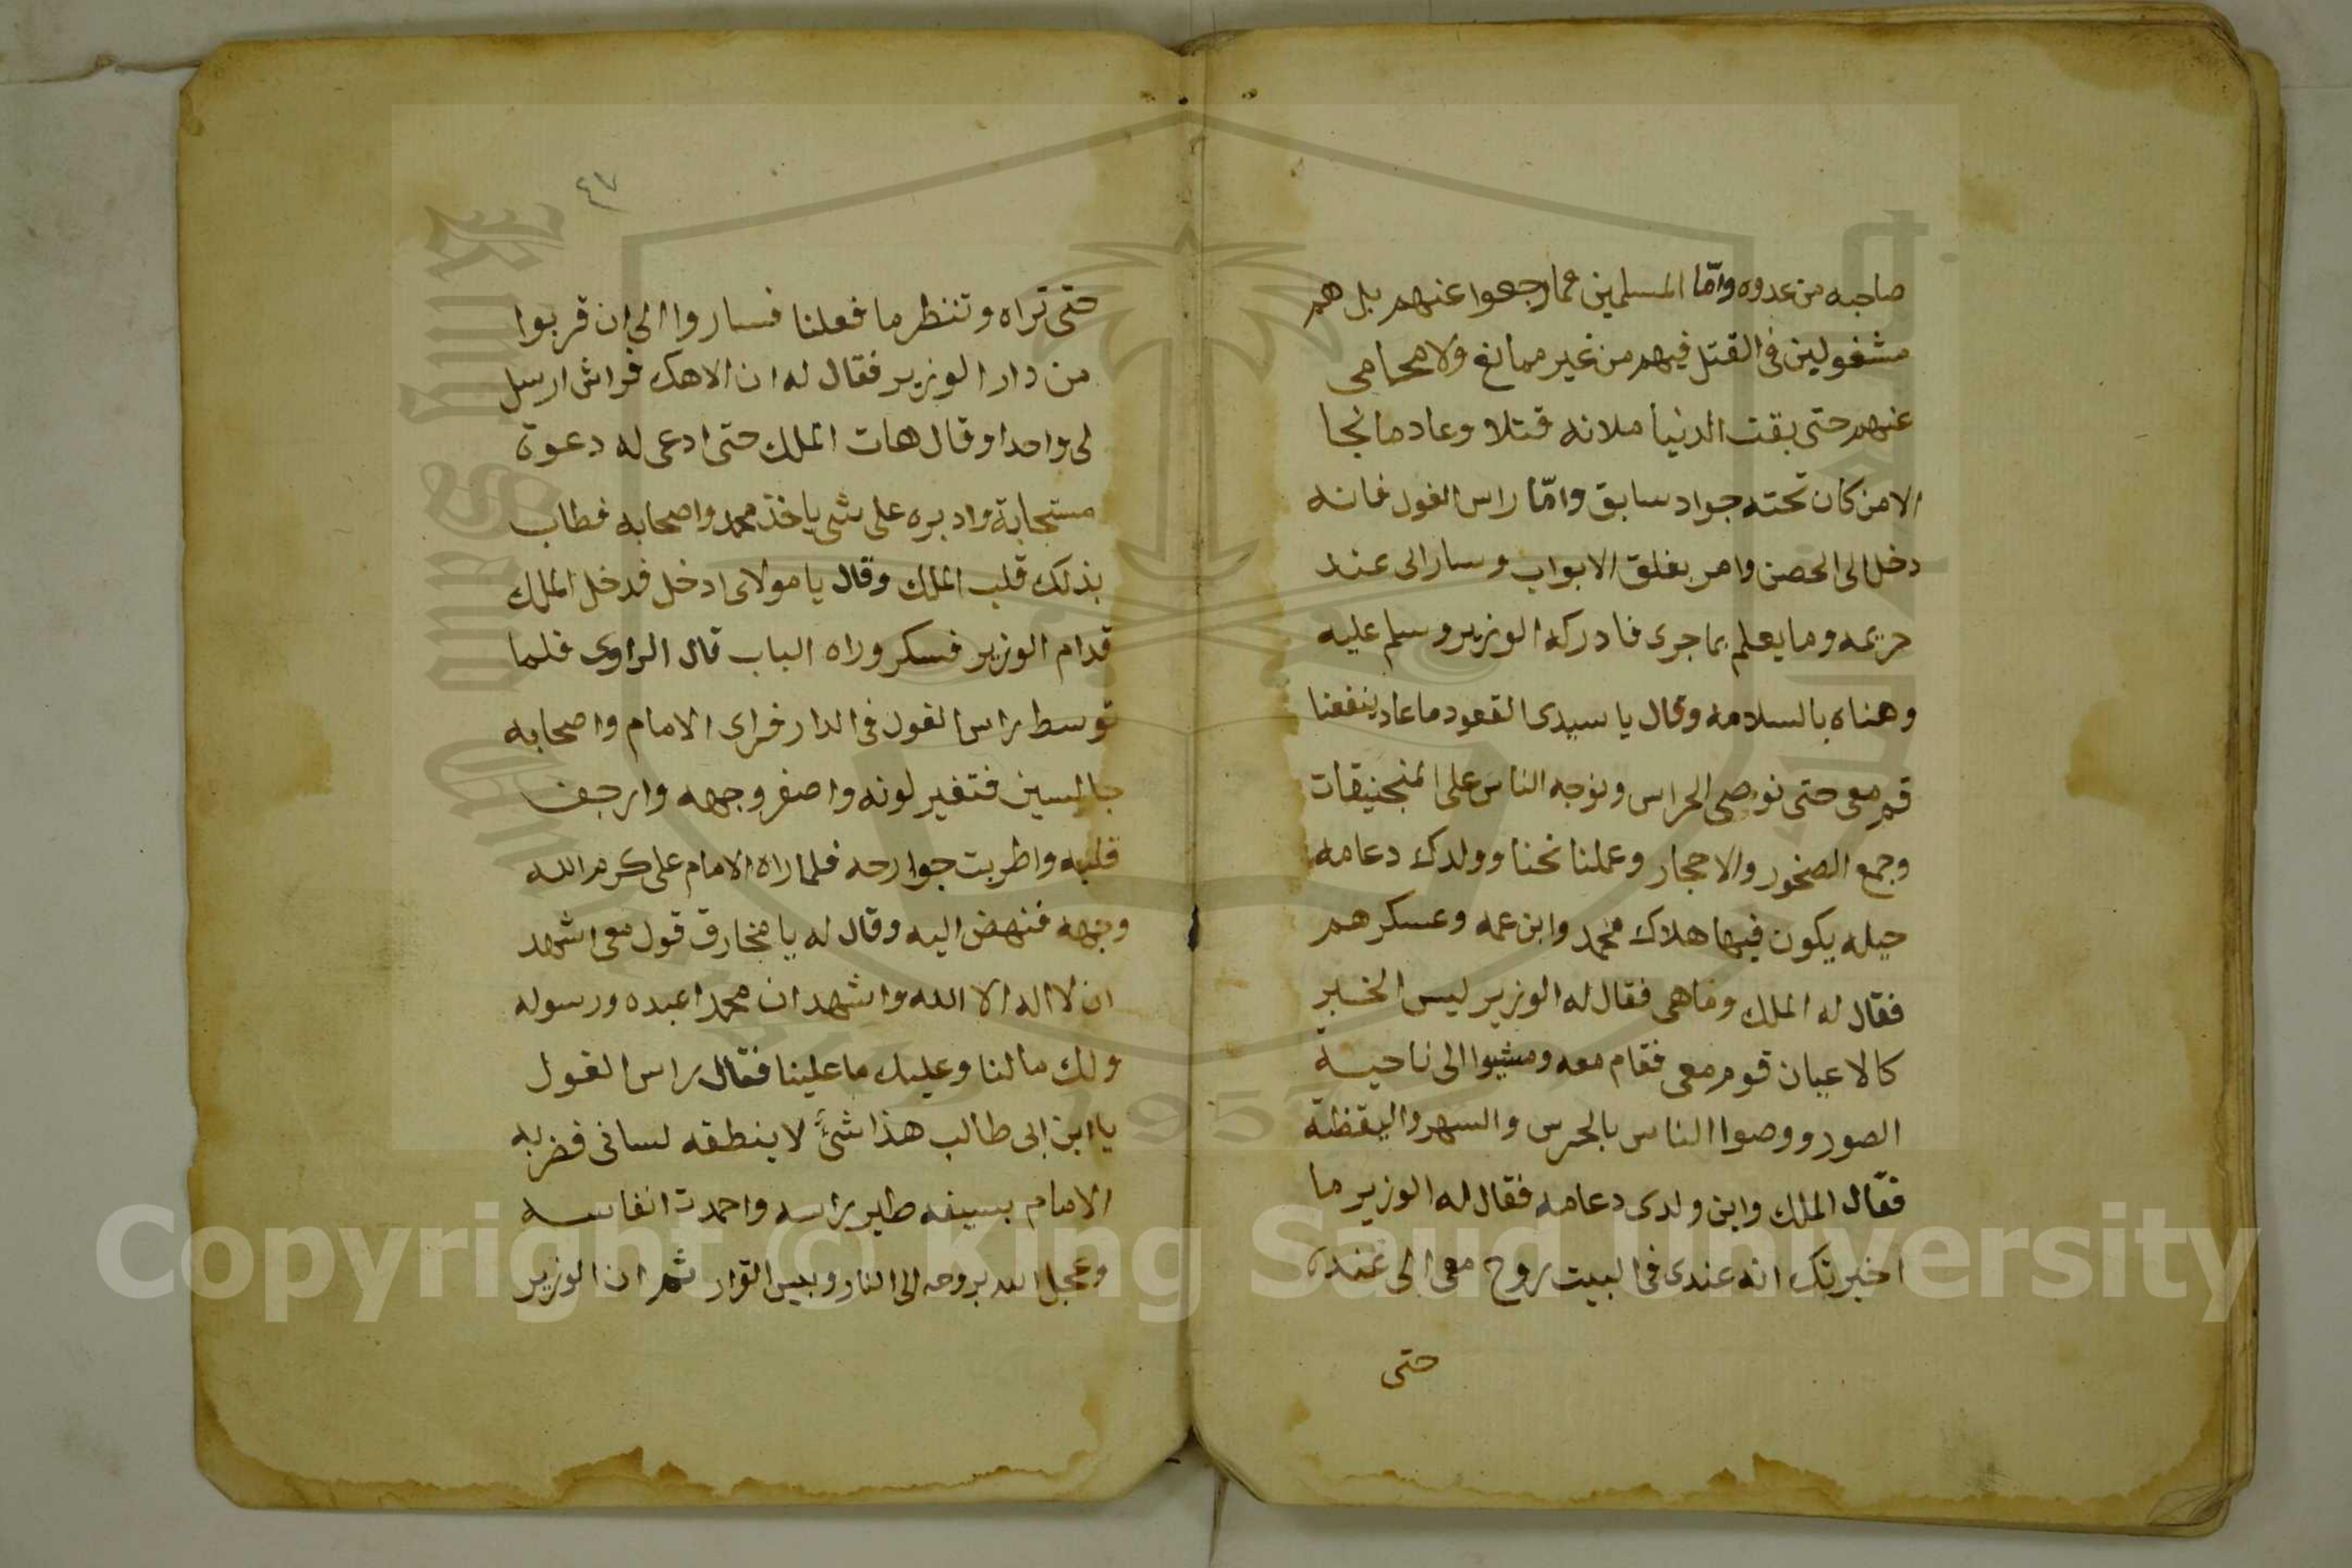 صاحبه من عدوه وامّا المسلمين فما رجعوا عنهم بل هم
مشغولين فى القتل فيهم من غير ممانع ولا محامى
عنهم حتى بقت الدنيا ملانه قتلا وعاد ما نجا
الا من كان تحته جواد سابق وامّا راس الغول فانه
دخل الى الحصن وامر بغلق الابواب وسار الى عند
حريمه وما يعلم بما جرى فادركه الوزير وسلم عليه
وهناه بالسلامه وقال يا سيدى القعود ما عاد ينفعنا
قم معى حتى نوصى الحراس ونوجه الناس على المنجنيقات
وجمع الصخور والاحجار وعملنا نحنا وولدك دعامه
حيله يكون فيها هلاك محمد وابن عمه وعسكرهم
فقال له الملك وما هى فقال له الوزير ليس الخبر
كالاعيان قوم معى فقام معه ومشيوا الى ناحية
الصور ووصوا الناس بالحرس والسهر واليقظة
فقال الملك واين ولدى دعامه فقال له الوزير ما
اخبرتك انه عندى فى البيت روح معى الى عنده
حتى
٤٧
حتى تراه وتنظر ما فعلنا فساروا الى ان قربوا
من دار الوزير فقال له ان الاهك فراش ارسل
لى واحدا وقال هات الملك حتى ادعى له دعوة
مستجابة وادبره على شى ياخذ محمد واصحابه فطاب
بذلك قلب الملك وقال يا مولاى ادخل فدخل الملك
قدام الوزير فسكر وراه الباب قال الراوى فلما
توسط راس الغول فى الدار فراى الامام واصحابه
جالسين فتغير لونه واصفر وجهه وارجف
قلبه واطربت جوارحه فلما راه الامام على كرم الله
وجهه فنهض اليه وقال له يا مخارق قول معى اشهد
ان لا اله الا الله واشهد ان محمدا عبده ورسوله
ولك ما لنا وعليك ما علينا فقال راس الغول
يا ابن ابى طالب هذا شئ لا ينطقه لسانى فضربه
الامام بسيفه طير راسه واحمدت انفاسه
وعجل الله بروحه الى النار وبيس القرار ثم ان الوزير
Copyright © King Saud University
1957